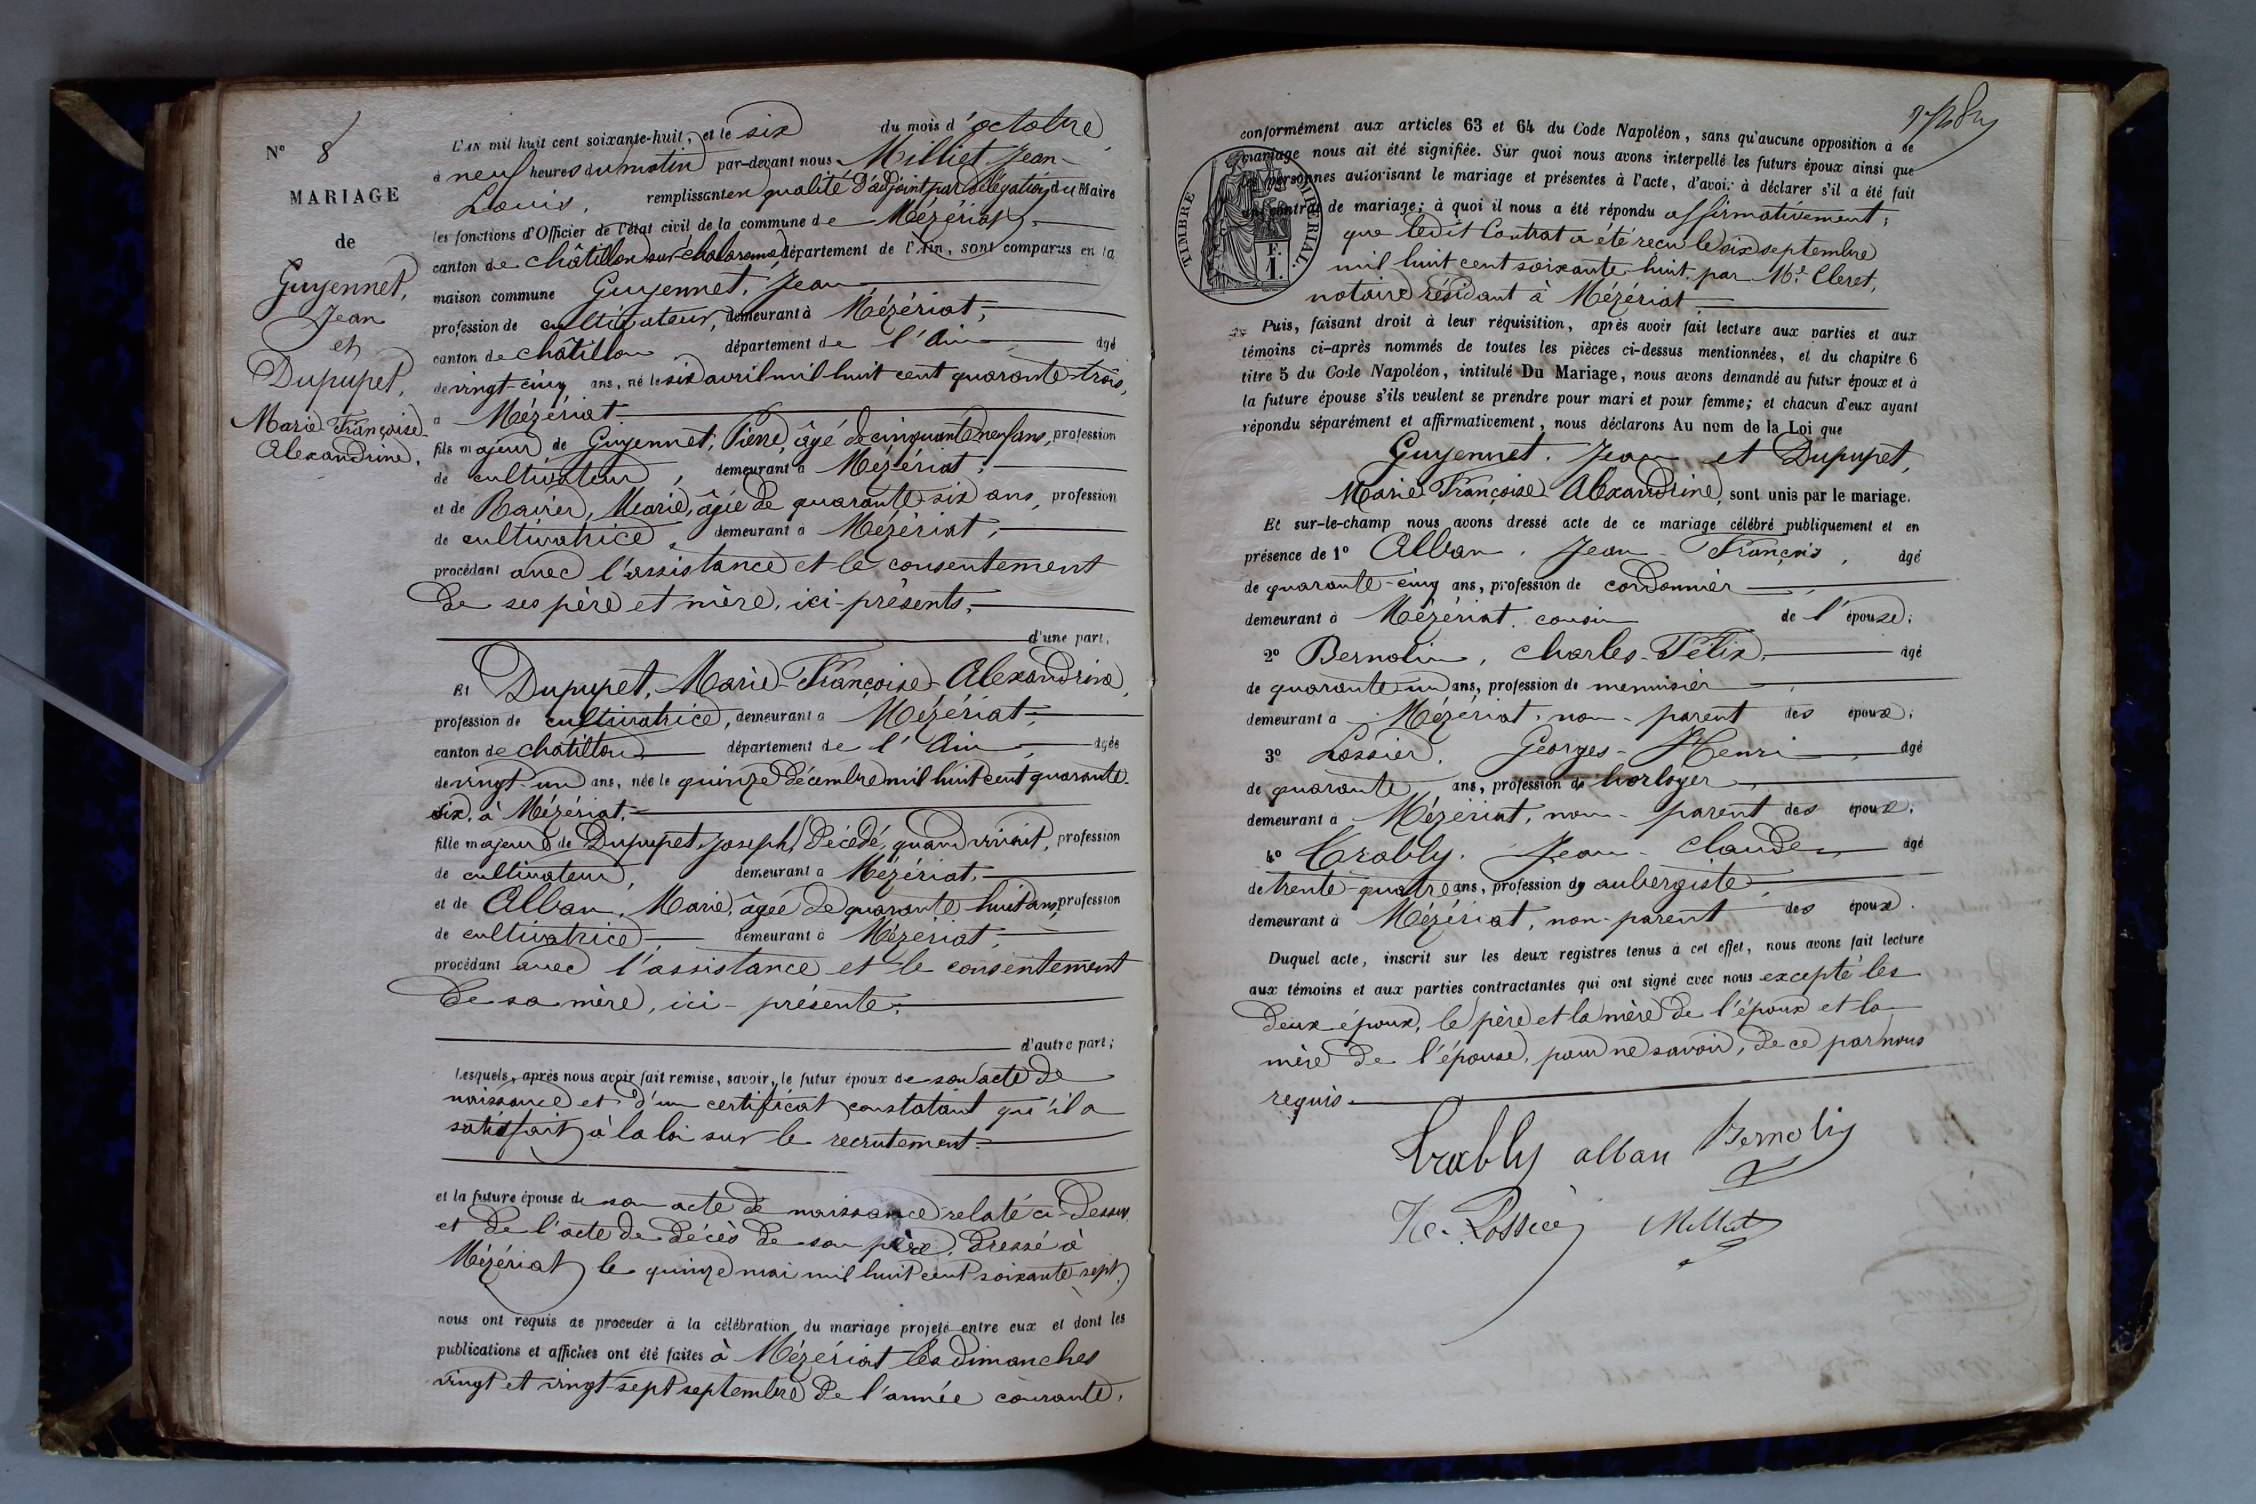 N° 8
MARIAGE
de
Guyennet,
Jean
et
Dupupet,
Marie-Françoise-
Alexandrine.
L'AN mil huit cent soixante-huit, et le six du mois d'octobre,
à neuf heures du matin par-devant nous Milliet Jean-
Louis, remplissant en qualité d'adjoint par délégation du Maire
les fonctions d'Officier de l'état civil de la commune de Mézériat,
canton de Châtillon sur Chalaronne, département de l'Ain, sont comparus en la
maison commune Guyennet, Jean
profession de cultivateur, demeurant à Mézériat,
canton de Châtillon, département de l'Ain, âgé
de vingt-cinq ans, né le six avril mil huit cent quarante-trois,
à Mézériat
fils majeur de Guyennet, Pierre, âgé de cinquante neuf ans, profession
de cultivateur, demeurant à Mézériat,
et de Ravier, Marie, âgée de quarante six ans, profession
de cultivatrice, demeurant à Mézériat,
procédant avec l'assistance et le consentement
de ses père et mère, ici-présents,
d'une part;
Et Dupupet, Marie-Françoise-Alexandrine,
profession de cultivatrice, demeurant à Mézériat,
canton de Châtillon département de l'Ain, âgée
de vingt-un ans, née le quinze décembre mil huit cent quarante-
six, à Mézériat,
fille majeure de Dupupet, Joseph, décédé, quand vivait, profession
de cultivateur, demeurant à Mézériat,
et de Alban, Marie, âgée de quarante huit ans, profession
de cultivatrice, demeurant à Mézériat,
procédant avec l'assistance et le consentement
de sa mère, ici-présente,
d'autre part;
Lesquels, après nous avoir fait remise, savoir, le futur époux de son acte de
naissance et d'un certificat constatant qu'il a
satisfait à la loi sur le recrutement.
et la future épouse de son acte de naissance relaté ci-dessus
et de l'acte de décès de son père, dressé à
Mézériat le quinze mai mil huit cent soixante-sept,
nous ont requis de procéder à la célébration du mariage projeté entre eux et dont les
publications et affiches ont été faites à Mézériat les dimanches
vingt et vingt-sept septembre de l'année courante,
conformément aux articles 63 et 64 du Code Napoléon, sans qu'aucune opposition à ce
mariage nous ait été signifiée. Sur quoi nous avons interpellé les futurs époux ainsi que
les personnes autorisant le mariage et présentes à l'acte, d'avoir à déclarer s'il a été fait
un contrat de mariage; à quoi il nous a été répondu affirmativement;
que ledit Contrat a été reçu le six septembre
mil huit cent soixante-huit, par Me Cleret,
notaire résidant à Mézériat
TIMBRE IMPÉRIAL.
F.
I.
Puis, faisant droit à leur réquisition, après avoir fait lecture aux parties et aux
témoins ci-après nommés de toutes les pièces ci-dessus mentionnées, et du chapitre 6
titre 5 du Code Napoléon, intitulé Du Mariage, nous avons demandé au futur époux et à
la future épouse s'ils veulent se prendre pour mari et pour femme; et chacun d'eux ayant
répondu séparément et affirmativement, nous déclarons Au nom de la Loi que
Guyennet, Jean et Dupupet,
Marie-Françoise-Alexandrine, sont unis par le mariage.
Et sur-le-champ nous avons dressé acte de ce mariage célébré publiquement et en
présence de 1° Alban, Jean-François, âgé
de quarante-cinq ans, profession de cordonnier,
demeurant à Mézériat, cousin de l'épouse;
2° Bernolin, Charles-Félix, âgé
de quarante-un ans, profession de menuisier,
demeurant à Mézériat, non-parent des époux;
3° Lossier, Georges-Henri, âgé
de quarante ans, profession de horloger,
demeurant à Mézériat, non-parent des époux;
4° Crably, Jean-Claude, âgé
de trente-quatre ans, profession de aubergiste,
demeurant à Mézériat, non-parent des époux.
Duquel acte, inscrit sur les deux registres tenus à cet effet, nous avons fait lecture
aux témoins et aux parties contractantes qui ont signé avec nous excepté les
deux époux, le père et la mère de l'époux et la
mère de l'épouse, pour ne savoir, de ce par nous
requis.
Crably alban Bernolin
H. Lossier Milliet